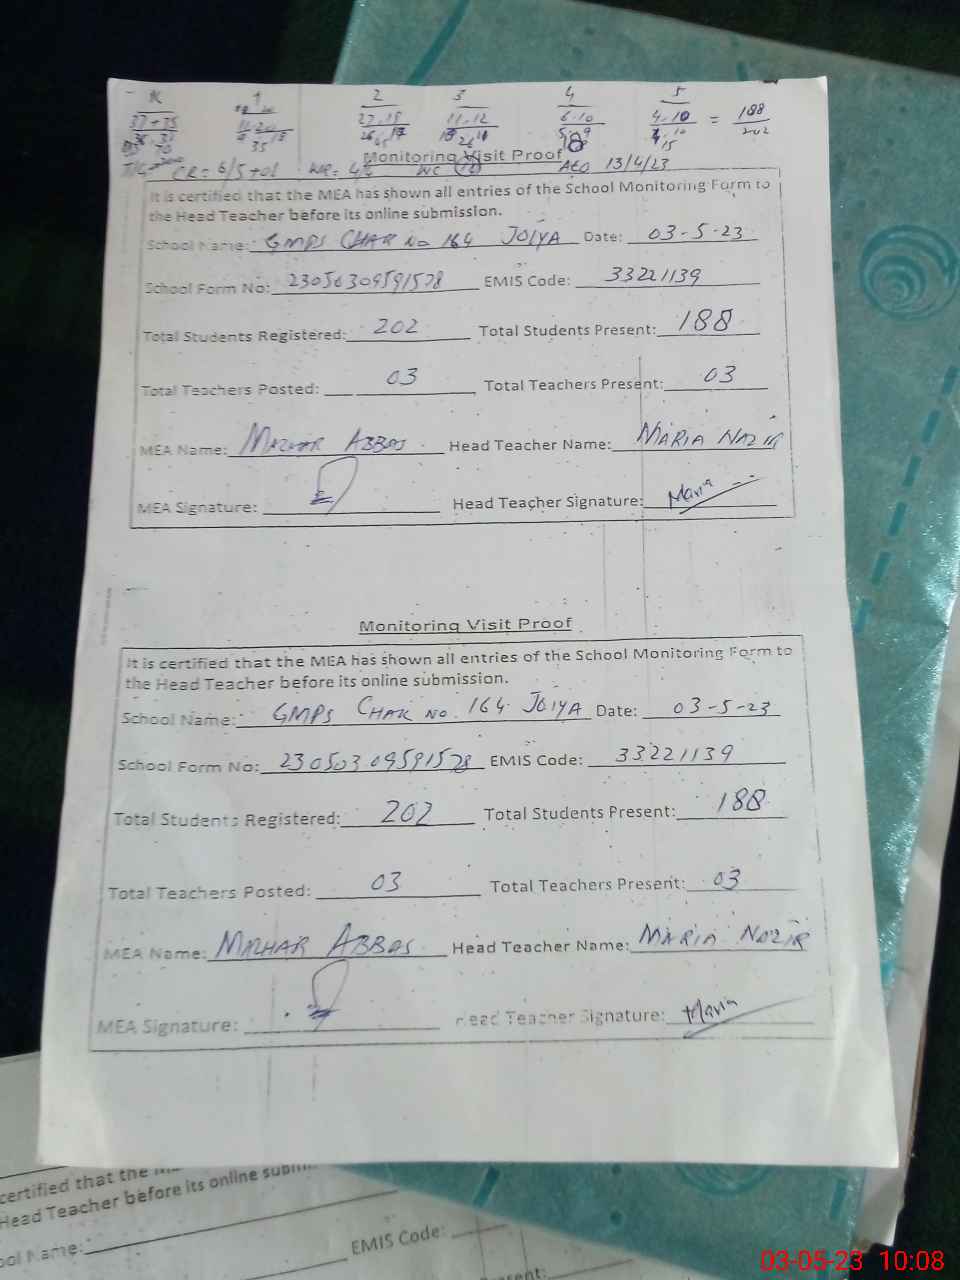 K 1 2 3 4 5
27.18 11.12 6.10 4.10 = 188
35 202
CR = 6/5 +01 WC AEO 13/4/23
Monitoring Visit Proof
It is certified that the MEA has shown all entries of the School Monitoring Form to
the Head Teacher before its online submission.
School Name: GMPS CHAK No 164 JOIYA Date: 03-5-23
School Form No: 23050309591578 EMIS Code: 33221139
Total Students Registered: 202 Total Students Present: 188
Total Teachers Posted: 03 Total Teachers Present: 03
MEA Name: MAZHAR ABBAS Head Teacher Name: MARIA NAZIR
MEA Signature: Head Teacher Signature: Maria
Monitoring Visit Proof
It is certified that the MEA has shown all entries of the School Monitoring Form to
the Head Teacher before its online submission.
School Name: GMPS CHAK NO. 164 JOIYA Date: 03-5-23
School Form No: 23050309591578 EMIS Code: 33221139
Total Students Registered: 202 Total Students Present: 188
Total Teachers Posted: 03 Total Teachers Present: 03
MEA Name: MAZHAR ABBAS Head Teacher Name: MARIA NAZIR
MEA Signature: Head Teacher Signature: Maria
certified that the
Head Teacher before its online
Name: EMIS Code:
03-05-23 10:08